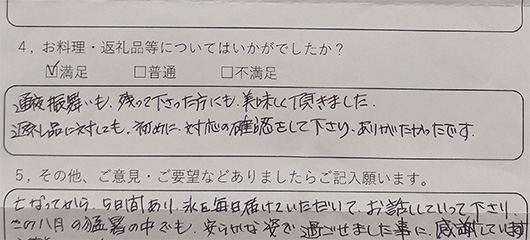 4，お料理・返礼品等についてはいかがでしたか？
☑満足 □普通 □不満足
通夜振舞いも、残って下さった方にも、美味しく頂きました。
返礼品に対しても、初めに、対応の確認をして下さり、ありがたかったです。
5，その他、ご意見・ご要望などありましたらご記入願います。
亡なってから、5日間あり、氷を毎日届けていただいて、お話していって下さり、
この八月の猛暑の中でも、安らかな姿で過ごせました事に、感謝しています